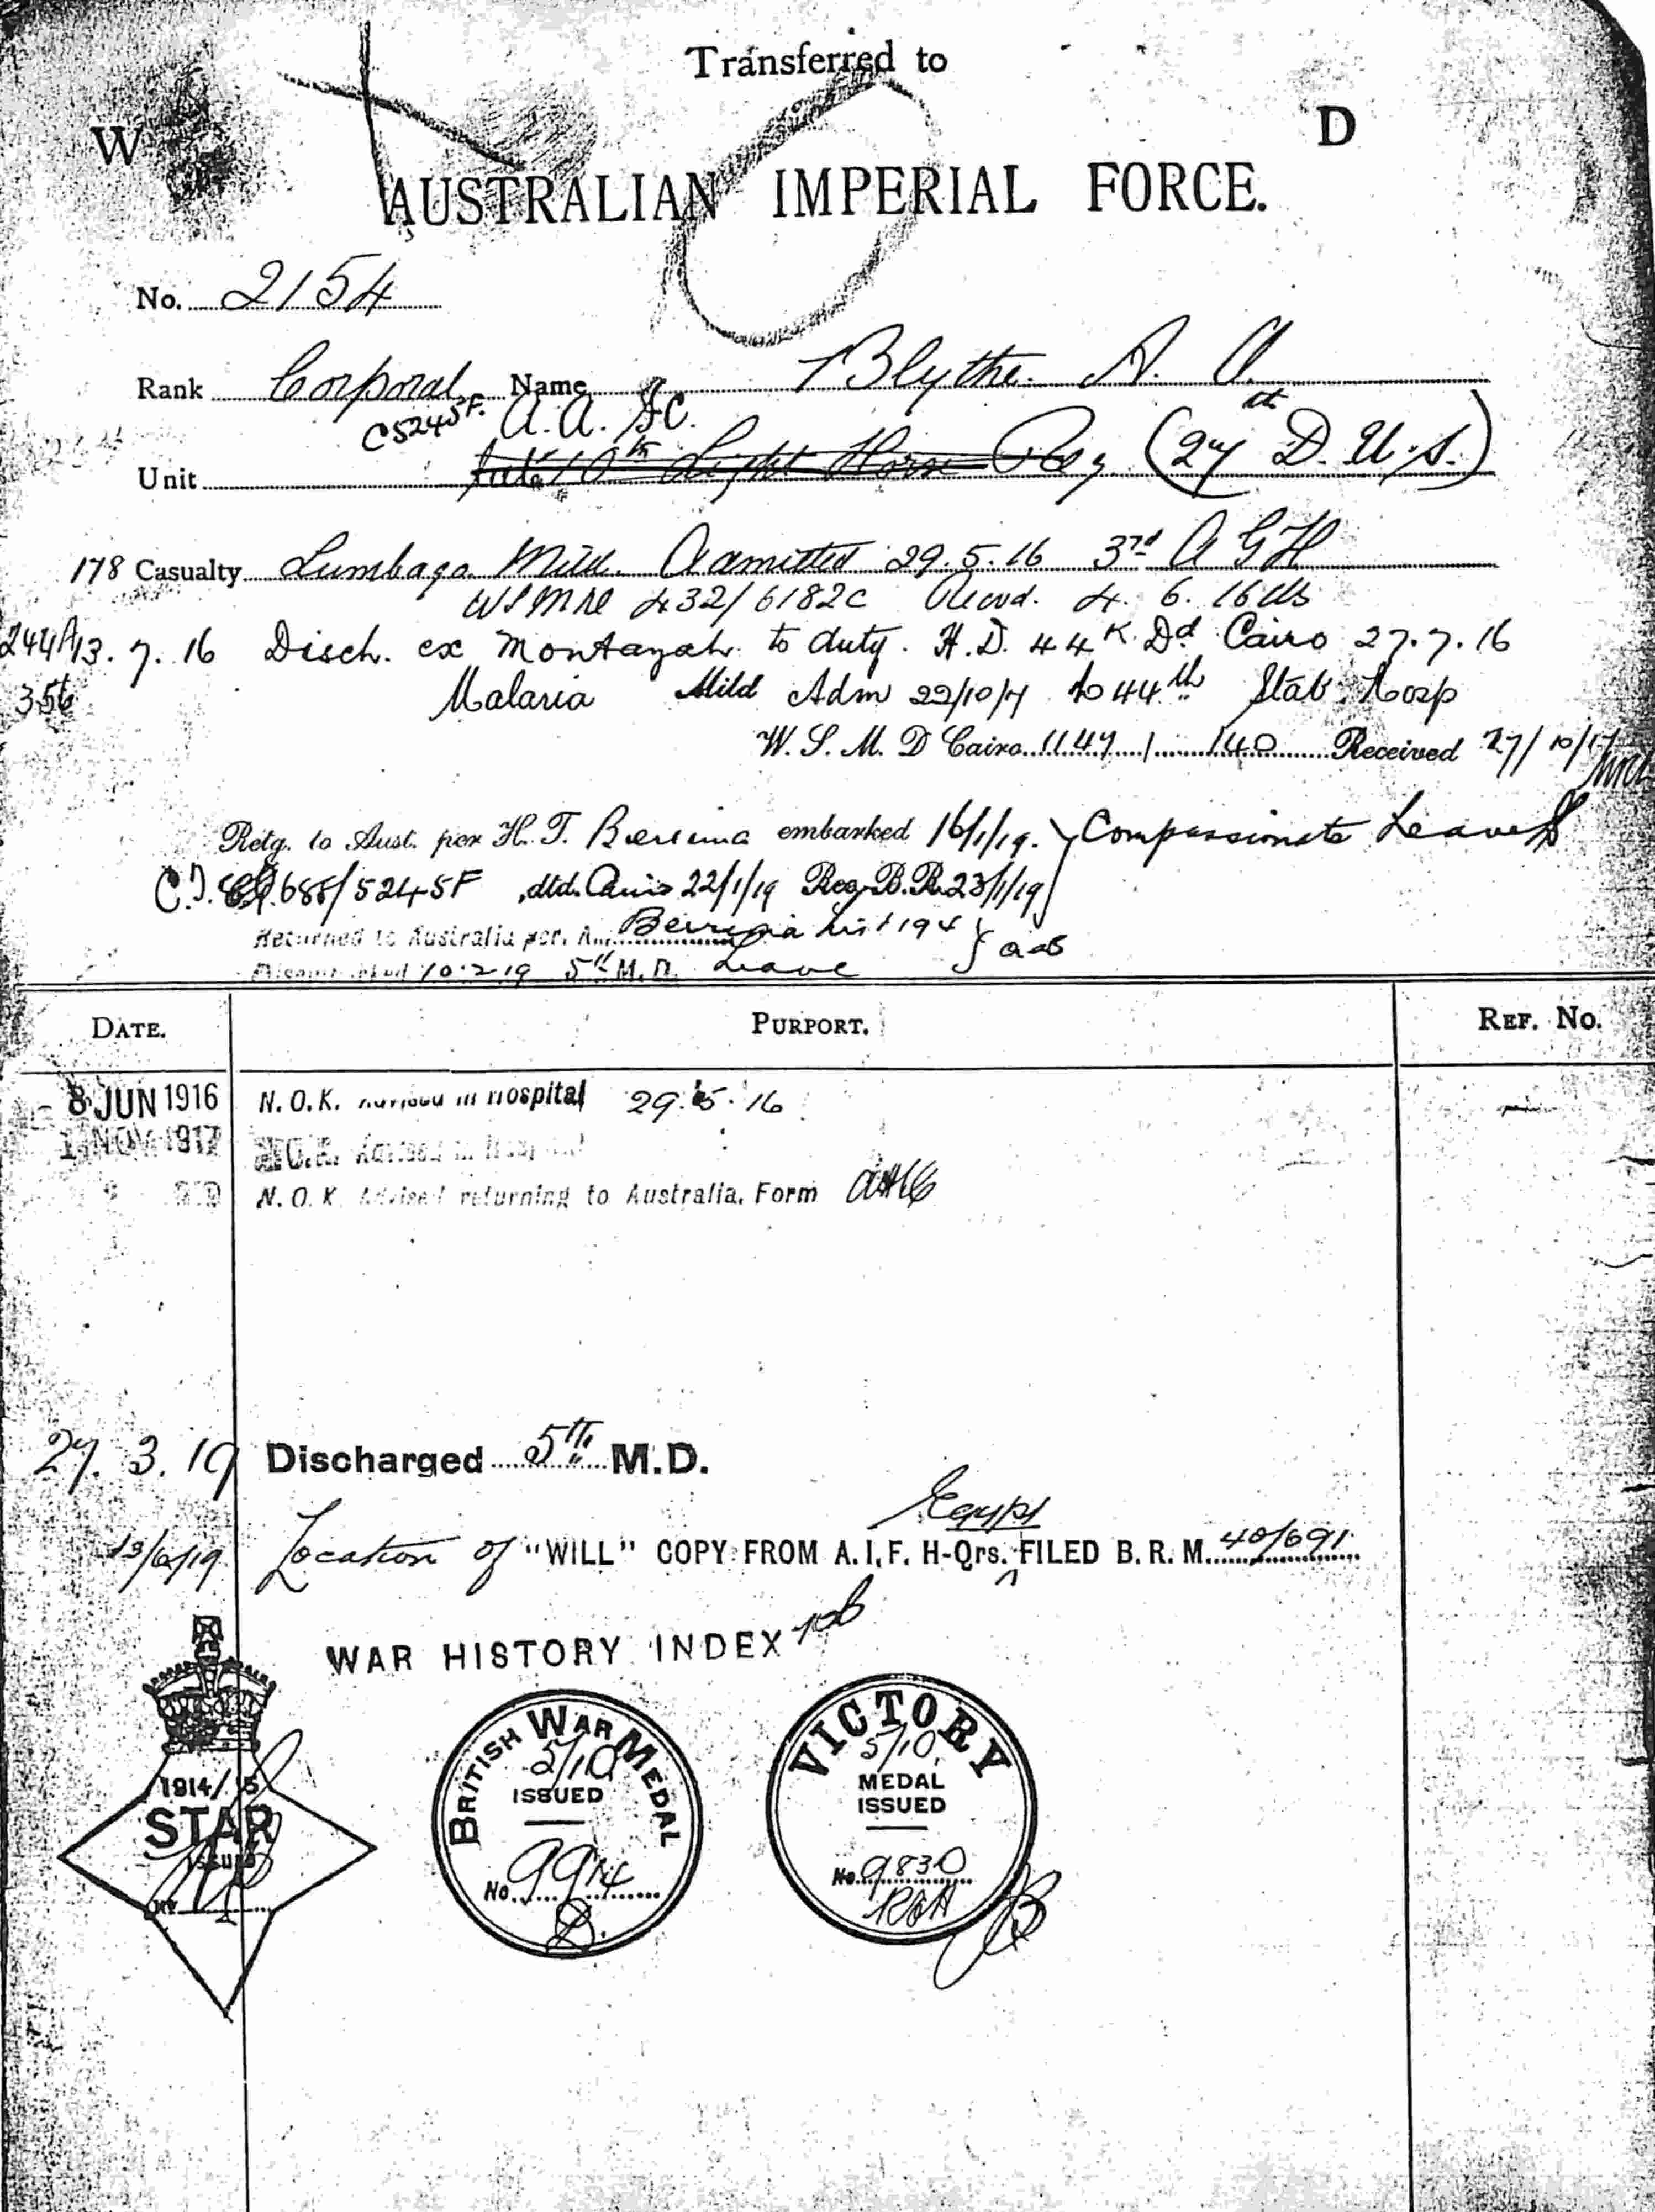 Transferred to
W D
AUSTRALIAN IMPERIAL FORCE.
No. 2154
Rank Corporal Name Blythe. A. A.
C5245F. A. A. SC.
Unit 10th Light Horse Reg (27th D. U. S.)
178 Casualty Lumbago Mild. Admitted 29.5.16 3rd A G H
432/6182C 4. 6. 16
244A 13. 7. 16 Disch. ex Montazah to duty. H.D. 44 K. Dd Cairo 27.7.16
356 Malaria Mild Adm 22/10/17 to 44th Stat. Hosp
W. S. M. D Cairo 1147 / 140 Received 27/10/17
Retg. to Aust. per H. T. Berrima embarked 16/1/19. Compassionate Leave
685/5245F dtd. Cairo 22/1/19 Rec B.R. 23/1/19
Returned to Australia per. Berrima List 194
10.2.19 5th M.D. Leave
DATE. PURPORT. REF. NO.
8 JUN 1916 N.O.K. Advised in Hospital 29.5.16
1 NOV 1917 N.O.K. Advised in Hospital
N.O.K. Advised returning to Australia. Form
27. 3. 19 Discharged 5th M.D.
Egypt
13/6/19 Location of "WILL" COPY FROM A.I.F. H-Qrs. FILED B.R.M. 40/691
WAR HISTORY INDEX
1914/15
STAR
ISSUED
No
BRITISH WAR MEDAL
5/10
ISSUED
No 9914
VICTORY
5/10
MEDAL
ISSUED
No 9830